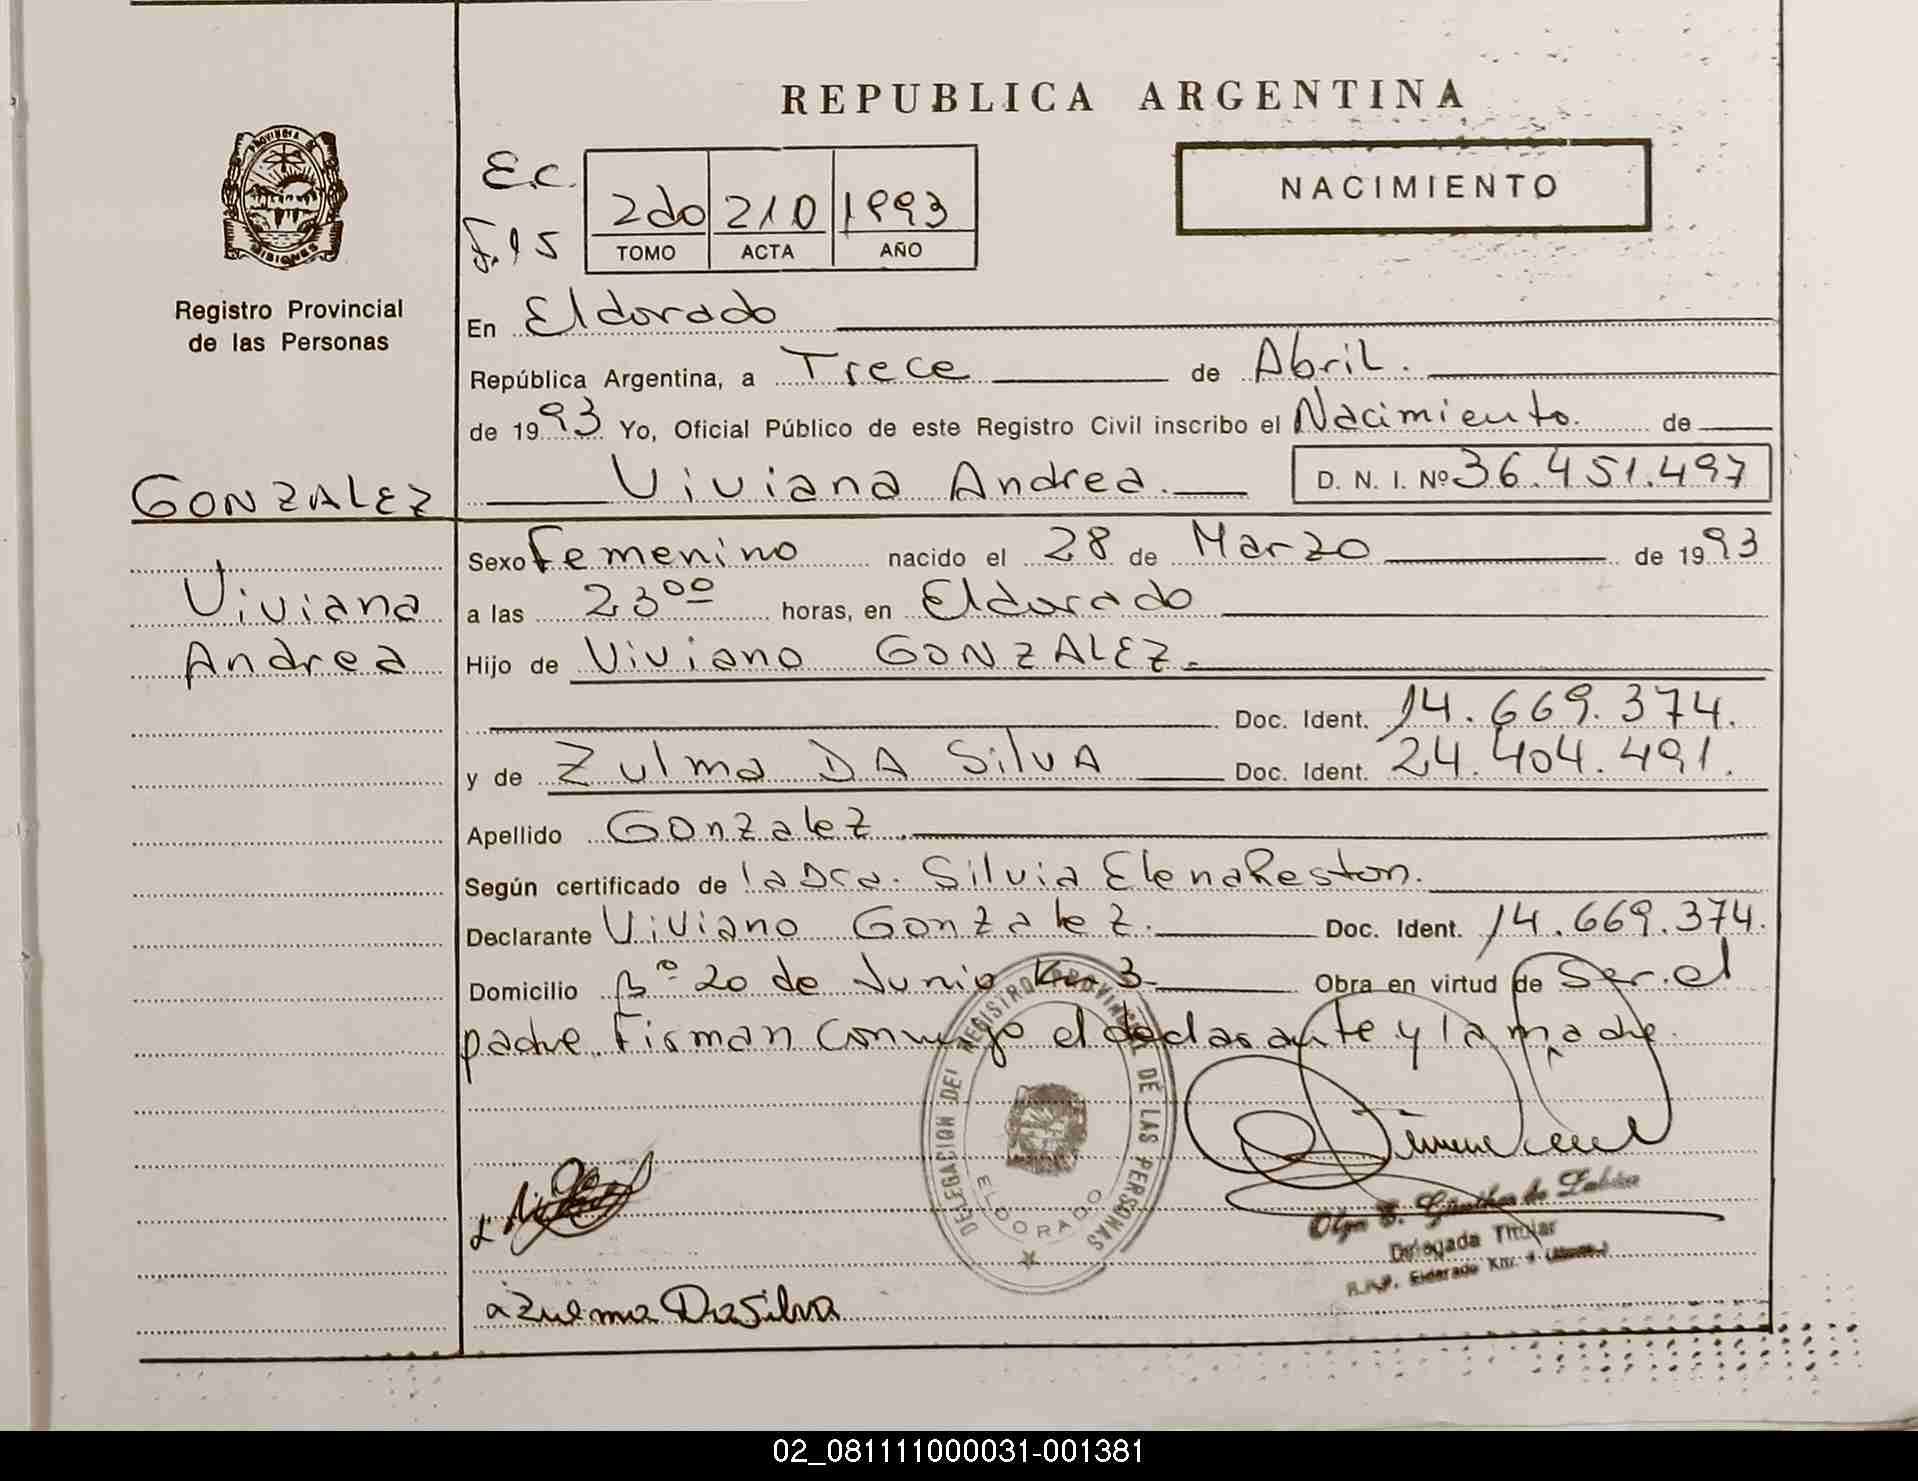 REPUBLICA ARGENTINA
PROVINCIA DE
MISIONES
Registro Provincial
de las Personas
E.C.
F. 95
2do 210 1993
TOMO ACTA AÑO
NACIMIENTO
En Eldorado
República Argentina, a Trece de Abril.
de 1993 Yo, Oficial Público de este Registro Civil inscribo el Nacimiento. de
Viviana Andrea. D. N. I. Nº 36.451.497
GONZALEZ
Viviana
Andrea
Sexo Femenino nacido el 28 de Marzo de 1993
a las 23 00 horas, en Eldorado
Hijo de Viviano GONZALEZ.
Doc. Ident. 14.669.374.
y de Zulma DA SilvA Doc. Ident. 24.404.491.
Apellido Gonzalez.
Según certificado de la Dra. Silvia Elena Reston.
Declarante Viviano Gonzalez. Doc. Ident. 14.669.374.
Domicilio Bº 20 de Junio Km 3 Obra en virtud de Ser el
padre. Firman conmigo el declarante y la madre.
DELEGACION DEL REGISTRO PROVINCIAL DE LAS PERSONAS
ELDORADO
Olga Günther de
Delegada Titular
R.P.P. Eldorado Km.
Zulma Da Silva
02_081111000031-001381